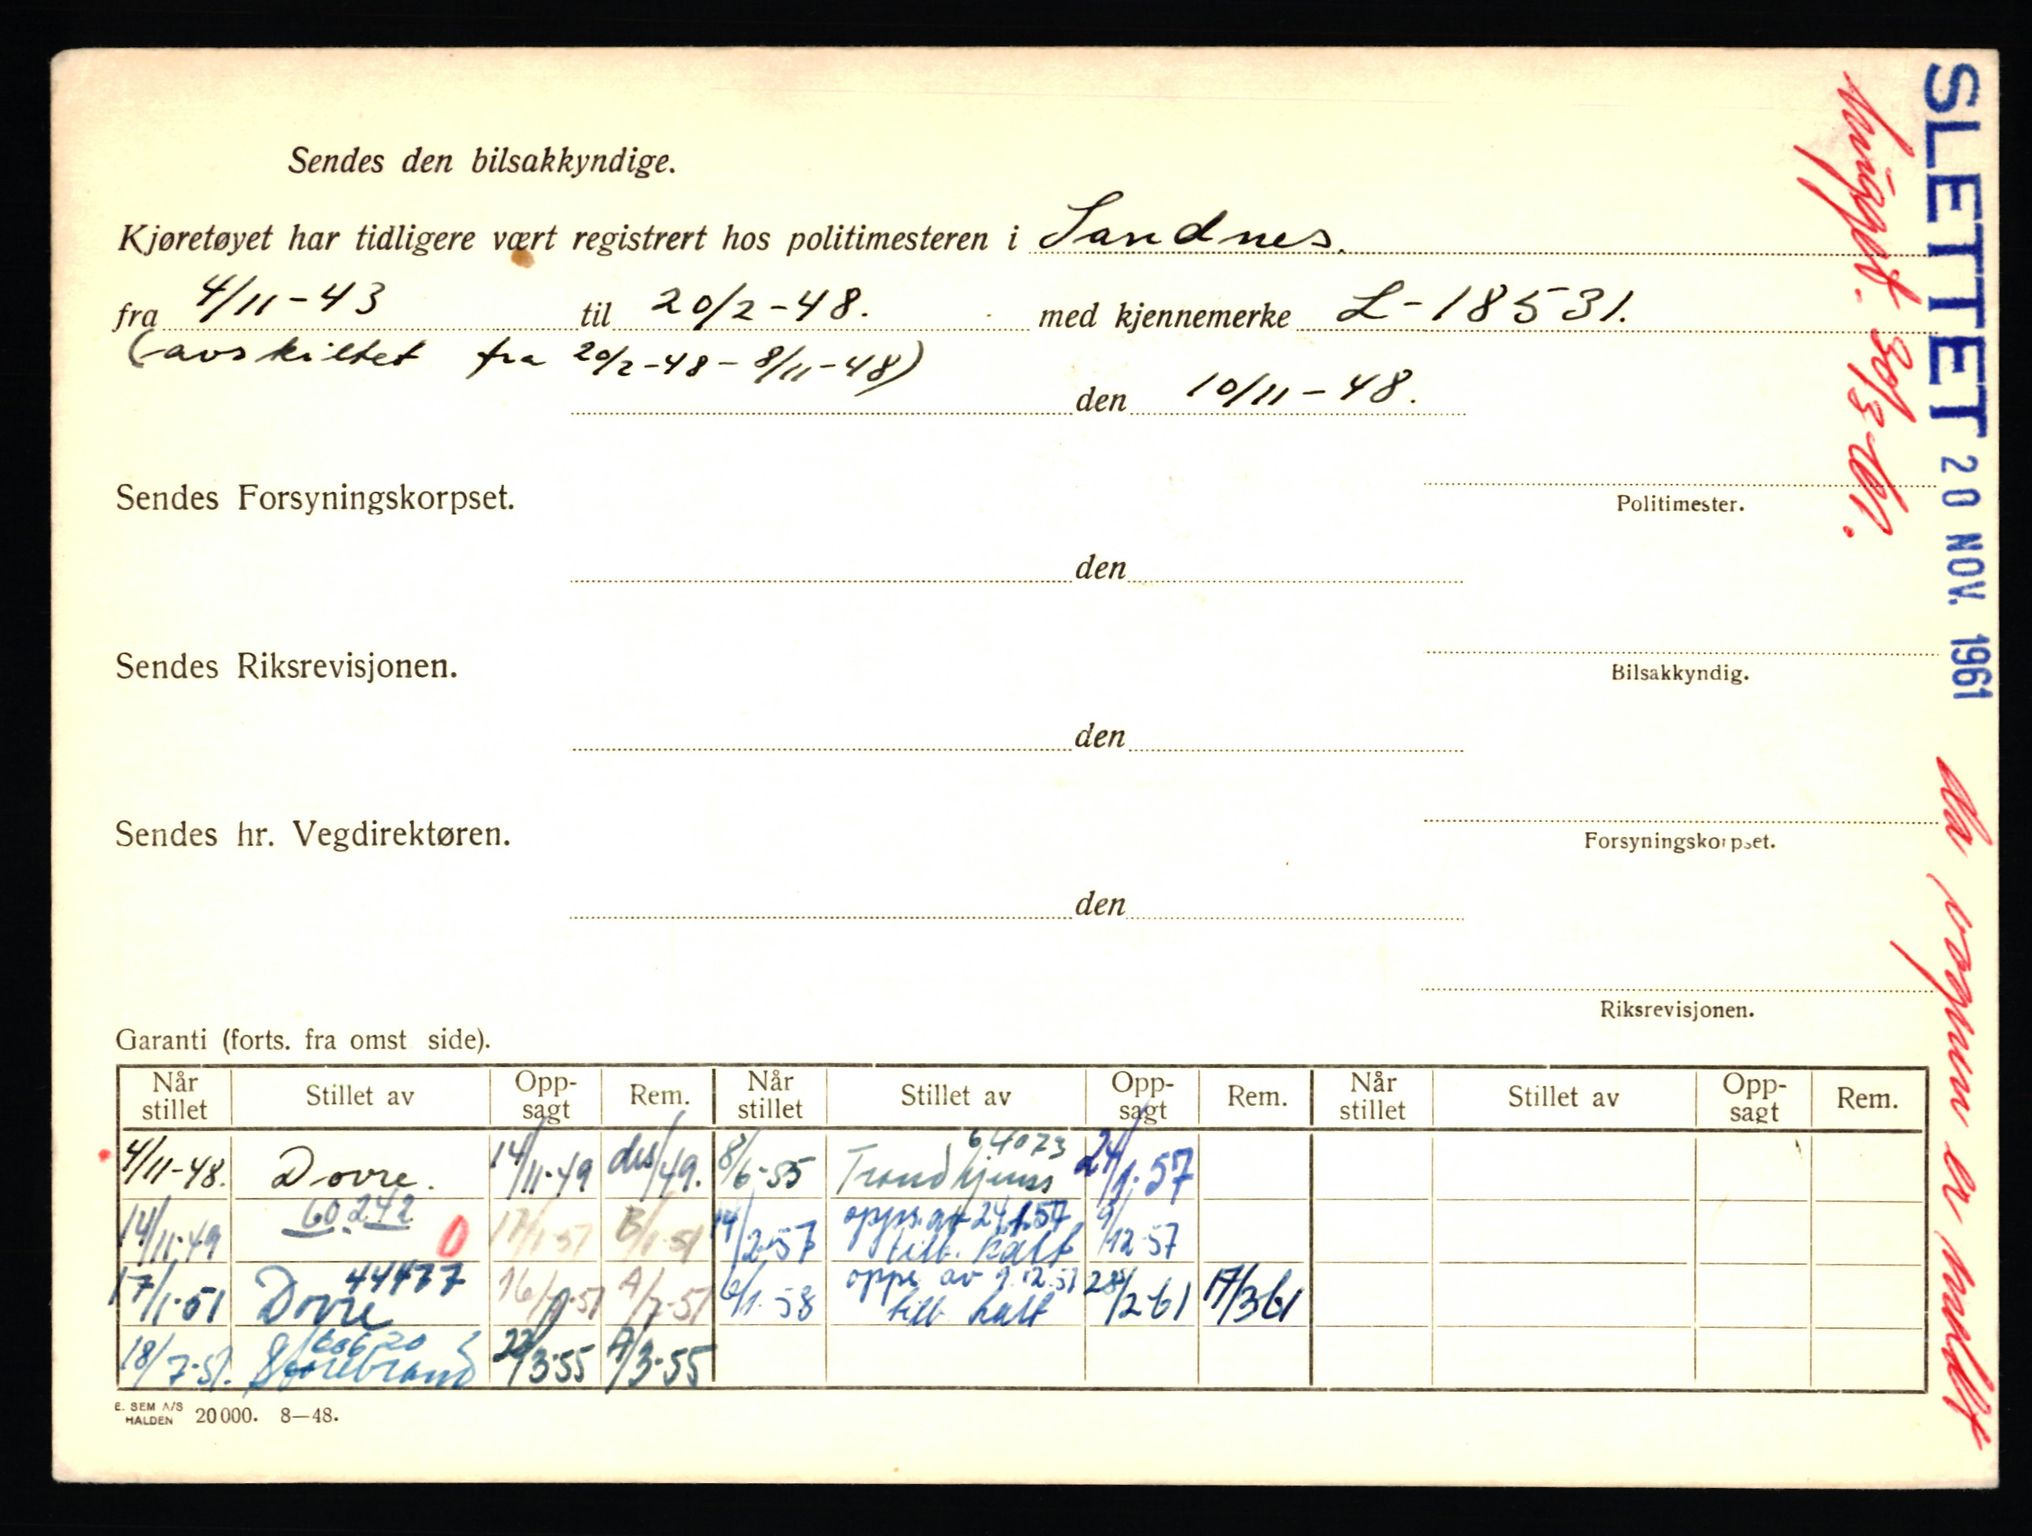 Sendes den bilsakkyndige.
Kjøretøyet har tidligere vært registrert hos politimesteren i Sandnes.
fra 4/11-43 til 20/2-48. med kjennemerke L-18531.
(avskiltet fra 20/2-48 - 8/11-48)
den 10/11-48.
Sendes Forsyningskorpset.
Politimester.
den
Sendes Riksrevisjonen.
Bilsakkyndig.
den
Sendes hr. Vegdirektøren.
Forsyningskorpset.
den
Riksrevisjonen.
Garanti (forts. fra omst side).
Når stillet Stillet av Opp-sagt Rem. Når stillet Stillet av Opp-sagt Rem. Når stillet Stillet av Opp-sagt Rem.
4/11-48. Dovre. 14/11-49 des/49. 8/6-55 64073 Trondhjems 24/1-57
14/11-49 60.242 0 17/1-51 B/1-51 14/2-57 opps. av 24.1.57 tilb. kalt 9/12-57
17/1-51 44477 Dovre 16/-51 A/7-51 6/1-58 opps av 9.12.57 tilb kalt 28/2-61 17/3-61
18/7-51. 60620 Storebrand 22/3-55 A/3-55
E. SEM A/S HALDEN 20000. 8—48.
SLETTET 20 NOV. 1961
da vognen er meldt